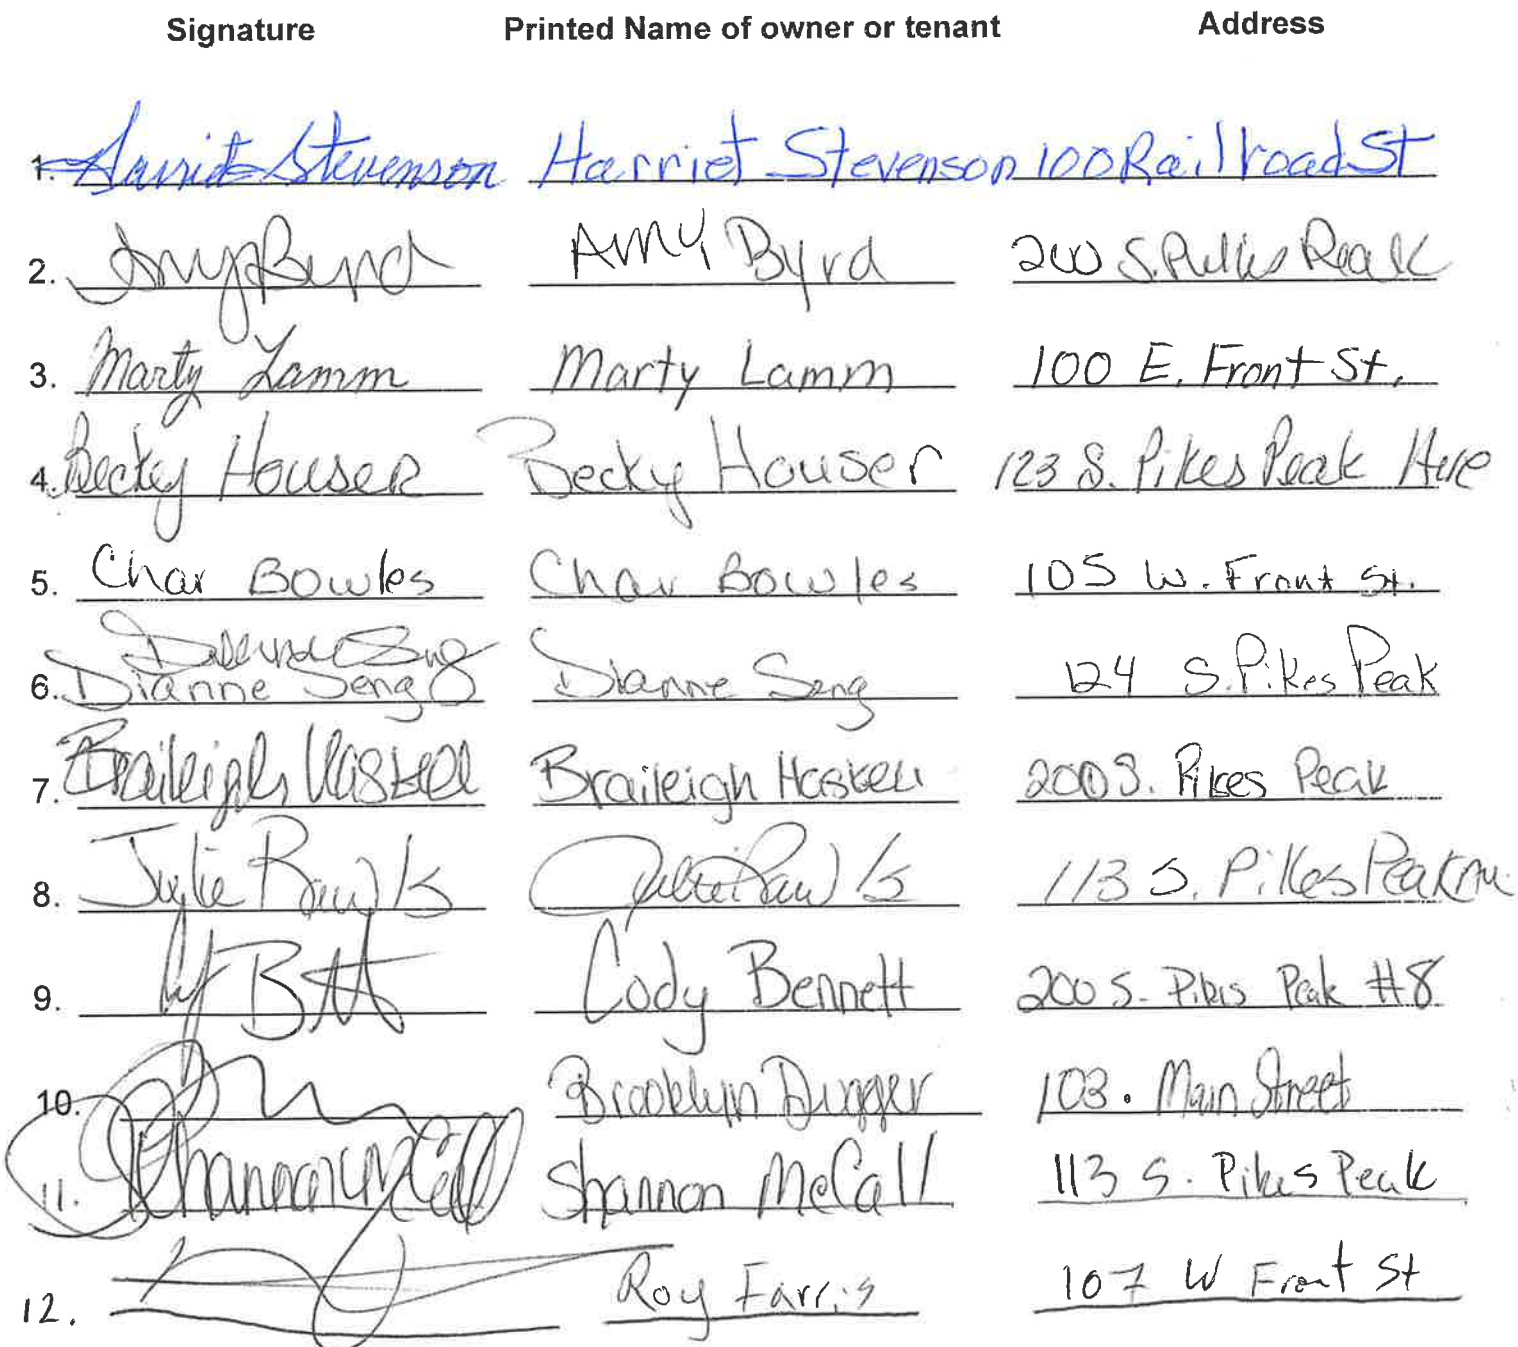 Signature Printed Name of owner or tenant Address
1. Harriet Stevenson Harriet Stevenson 100 Railroad St
2. Amy Byrd Amy Byrd 200 S. Pikes Peak
3. Marty Lamm Marty Lamm 100 E. Front St.
4. Becky Houser Becky Houser 123 S. Pikes Peak Ave
5. Char Bowles Char Bowles 105 W. Front St.
Dianne Seng
6. Dianne Seng Dianne Seng 124 S. Pikes Peak
7. Braileigh Haskell Braileigh Haskell 200 S. Pikes Peak
8. Julie Rawls Julie Rawls 113 S. Pikes Peak
9. Cody Bennett 200 S. Pikes Peak #8
10. Brooklyn Dugger 103. Main Street
11. Shannon McCall Shannon McCall 113 S. Pikes Peak
12. Roy Farris 107 W Front St